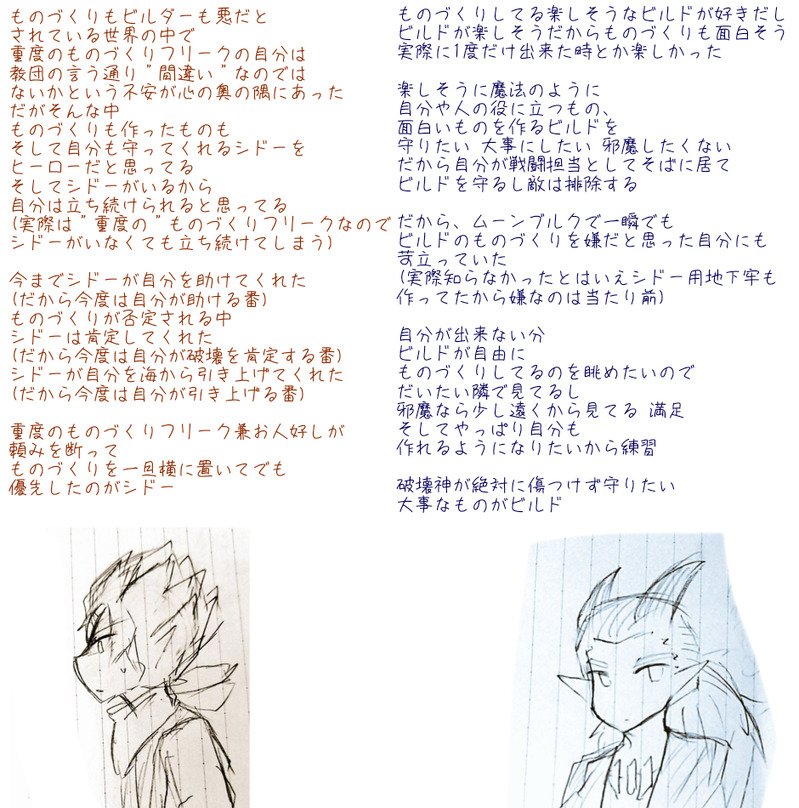 ものづくりもビルダーも悪だと
されている世界の中で
重度のものづくりフリークの自分は
教団の言う通り"間違い"なのでは
ないかという不安が心の奥の隅にあった
だがそんな中
ものづくりも作ったものも
そして自分も守ってくれるシドーを
ヒーローだと思ってる
そしてシドーがいるから
自分は立ち続けられると思ってる
(実際は"重度の"ものづくりフリークなので
シドーがいなくても立ち続けてしまう)
今までシドーが自分を助けてくれた
(だから今度は自分が助ける番)
ものづくりが否定される中
シドーは肯定してくれた
(だから今度は自分が破壊を肯定する番)
シドーが自分を海から引き上げてくれた
(だから今度は自分が引き上げる番)
重度のものづくりフリーク兼お人好しが
頼みを断って
ものづくりを一旦横に置いてでも
優先したのがシドー
ものづくりしてる楽しそうなビルドが好きだし
ビルドが楽しそうだからものづくりも面白そう
実際に1度だけ出来た時とか楽しかった
楽しそうに魔法のように
自分や人の役に立つもの、
面白いものを作るビルドを
守りたい 大事にしたい 邪魔したくない
だから自分が戦闘担当としてそばに居て
ビルドを守るし敵は排除する
だから、ムーンブルクで一瞬でも
ビルドのものづくりを嫌だと思った自分にも
苛立っていた
(実際知らなかったとはいえシドー用地下牢も
作ってたから嫌なのは当たり前)
自分が出来ない分
ビルドが自由に
ものづくりしてるのを眺めたいので
だいたい隣で見てるし
邪魔なら少し遠くから見てる 満足
そしてやっぱり自分も
作れるようになりたいから練習
破壊神が絶対に傷つけず守りたい
大事なものがビルド